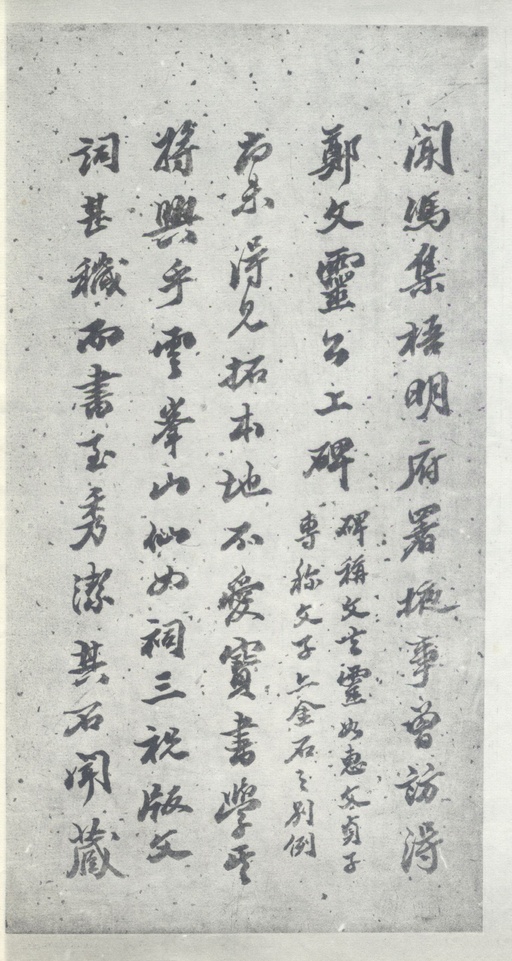 聞馮集梧明府署掖事曾訪得
鄭文靈公上碑
碑稱文空靈如惠文貞子
專稱文子亦金石之別例
尚未得見拓本地不愛寶書學其
將興乎雲峯山仙如祠三祝版文
詞甚穢而書至秀潔其石聞藏